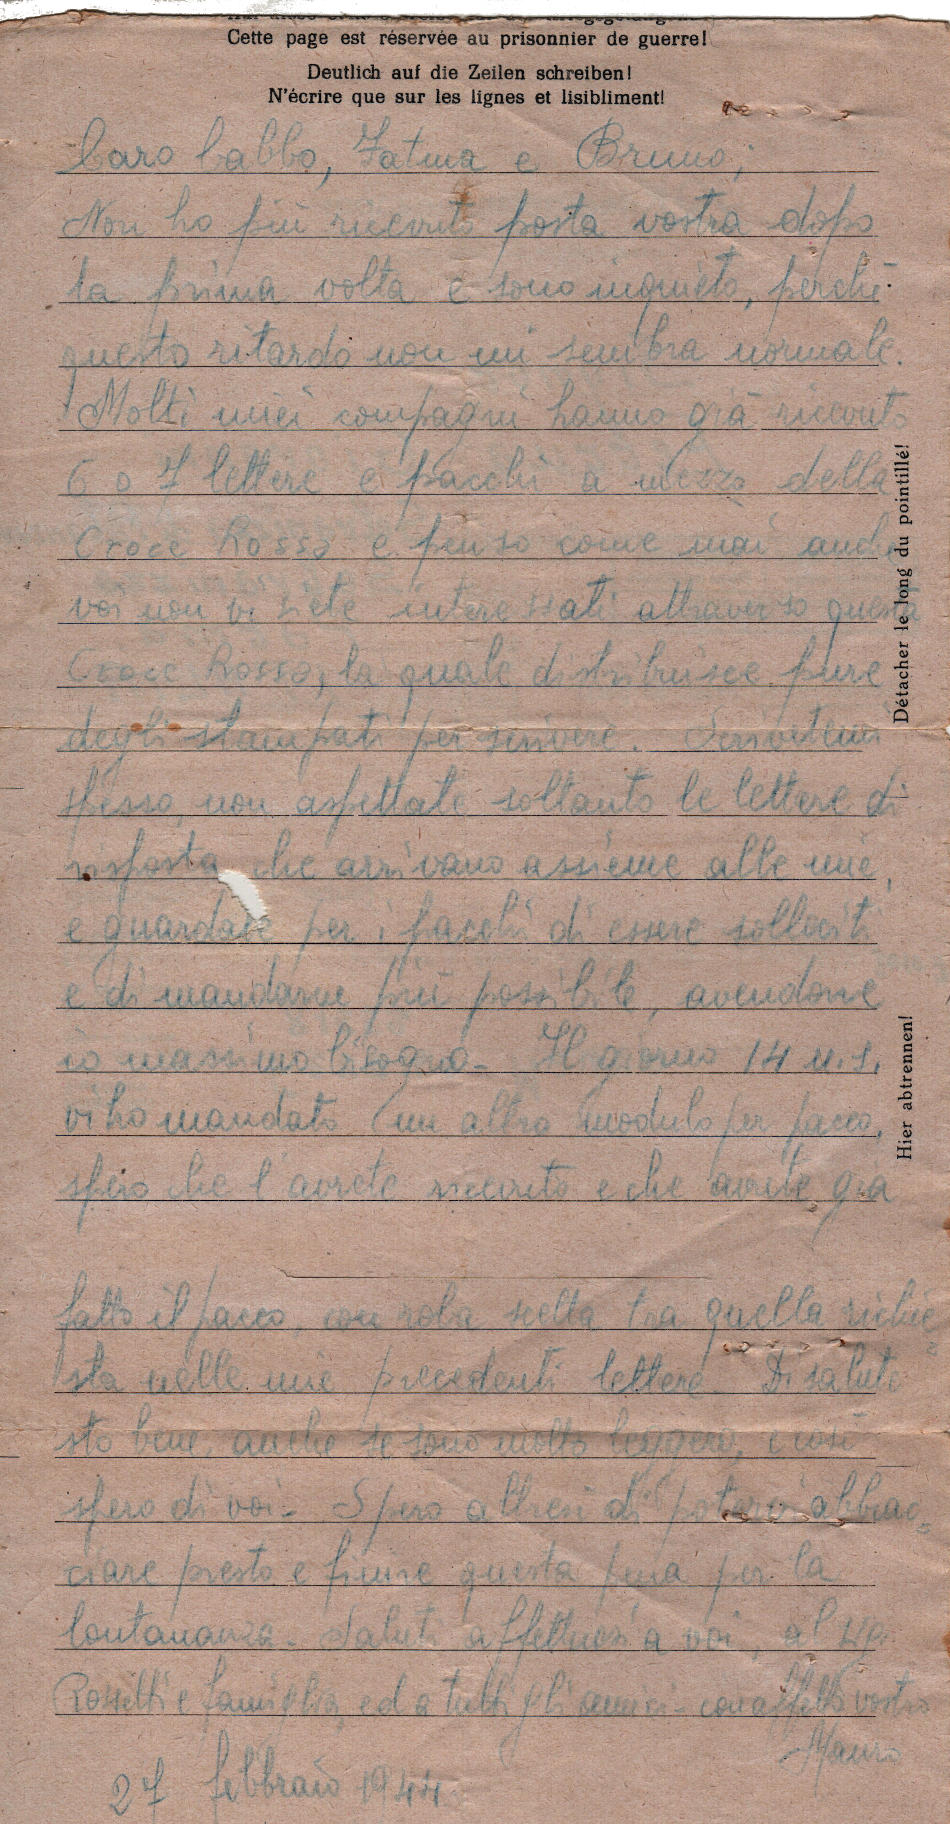 Cette page est réservée au prisonnier de guerre!
Deutlich auf die Zeilen schreiben!
N'écrire que sur les lignes et lisibliment!
Caro babbo, Fatma e Bruno,
Non ho più ricevuto posta vostra dopo
la prima volta e sono inquieto, perchè
questo ritardo non mi sembra normale.
Molti miei compagni hanno già ricevuto
6 o 7 lettere e pacchi a mezzo della
Croce Rossa e penso come mai anche
voi non vi siete interessati attraverso questa
Croce Rossa, la quale distribuisce pure
degli stampati per scrivere. Scrivetemi
spesso, non aspettate soltanto le lettere di
risposta che arrivano assieme alle mie,
e guardate per i pacchi di essere solleciti
e di mandarne più possibile, avendone
io massimo bisogno - Il giorno 14 u.s.
vi ho mandato un altro modulo per pacco,
spero che l'avrete ricevuto e che avrete già
fatto il pacco, con roba scelta tra quella richie=
sta nelle mie precedenti lettere. Di salute
sto bene, anche se sono molto leggero, e così
spero di voi - Spero altresì di potervi abbrac=
ciare presto e finire questa pena per la
lontananza - Saluti affettuosi a voi, al sig.
Rossetti e famiglia, ed a tutti gli amici - con affetto vostro
Mauro
27 febbraio 1944
Détacher le long du pointillé!
Hier abtrennen!